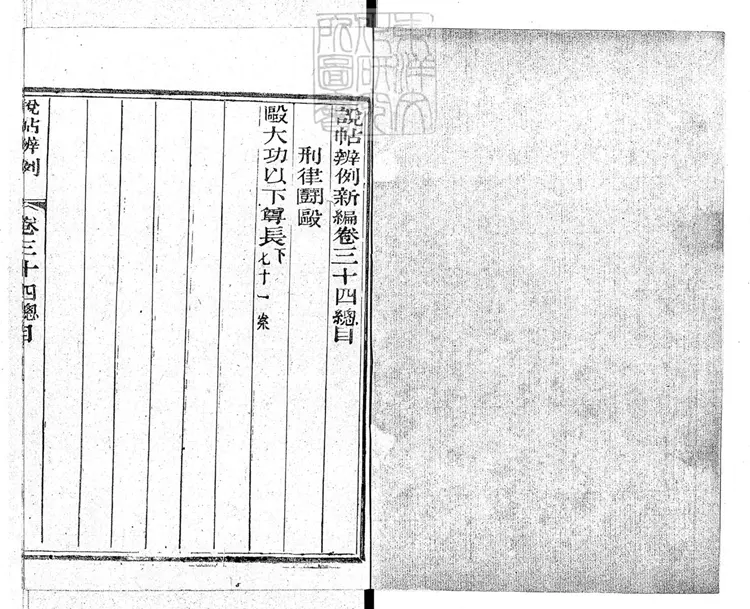 說帖辨例新編卷三十四總目
刑律鬬毆
毆大功以下尊長下七十一案
說帖辨例
卷三十四總目